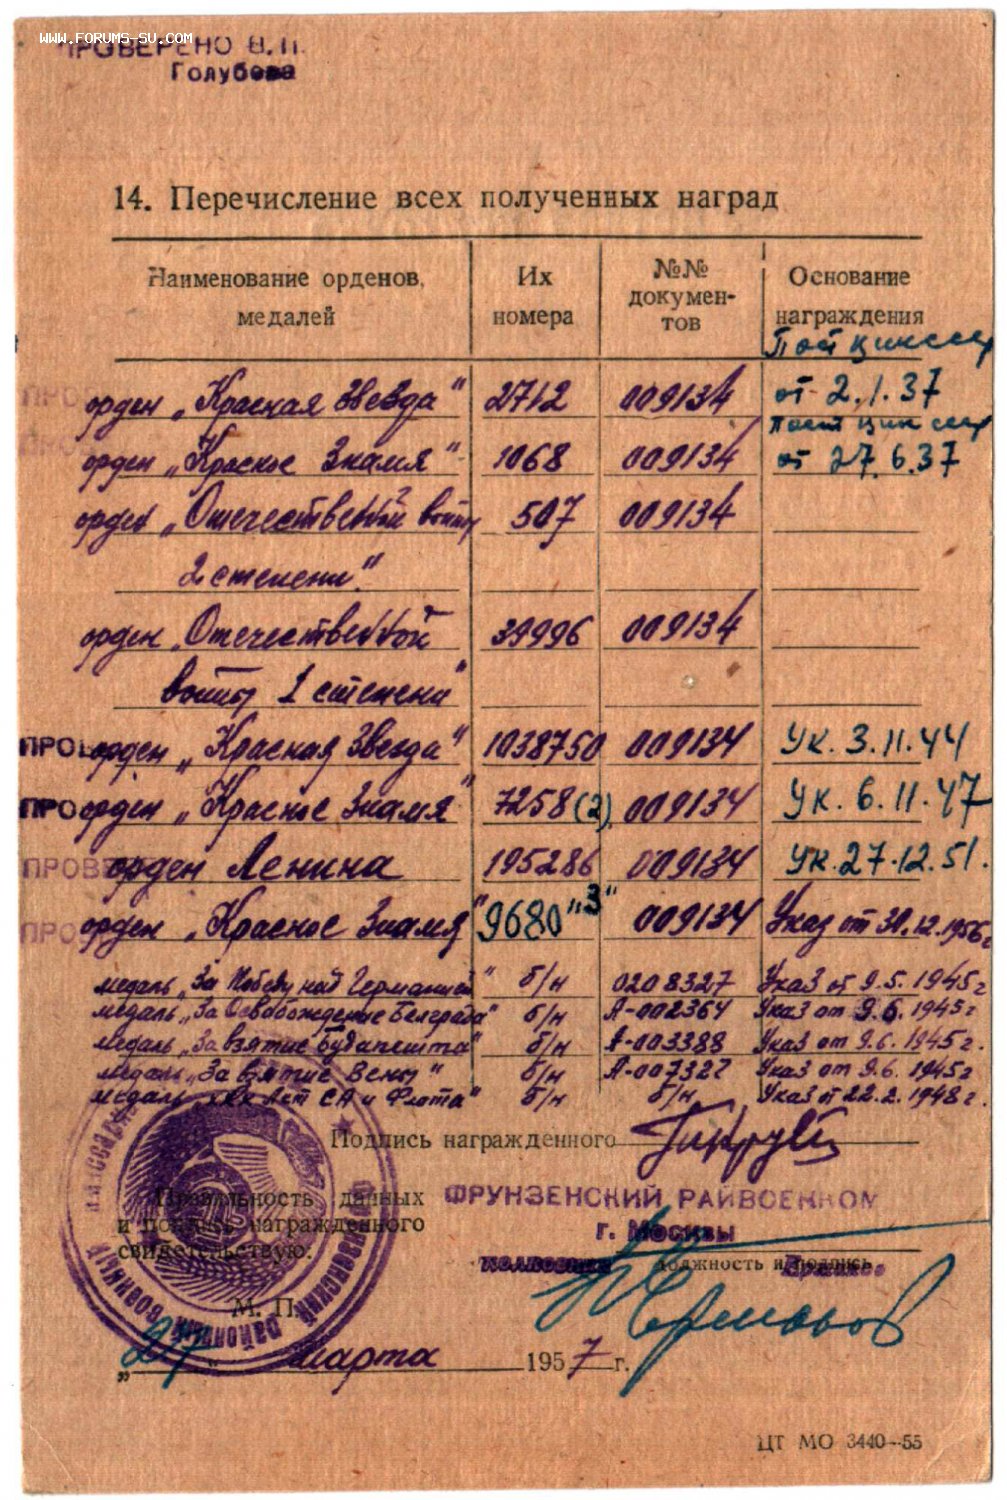 www.forums-su.com
ПРОВЕРЕНО В. П.
Голубева
14. Перечисление всех полученных наград
Наименование орденов, медалей Их номера №№ документов Основание награждения
Пост ЦИК СССР
орден „Красная Звезда" 2712 009134 от 2.1.37
Пост ЦИК СССР
орден „Красное Знамя" 1068 009134 от 27.6.37
орден „Отечественной войны 507 009134
2 степени"
орден „Отечественной 39996 009134
войны 1 степени"
орден „Красная Звезда" 1038750 009134 Ук. 3.11.44
орден „Красное Знамя" 7258 (2) 009134 Ук. 6.11.47
орден Ленина 195286 009134 Ук. 27.12.51.
орден „Красное Знамя" 9680 "3" 009134 Указ от 30.12.1956г
медаль „За Победу над Германией" б/н 0208327 Указ от 9.5.1945г
медаль „За Освобождение Белграда" б/н А-002364 Указ от 9.6.1945г
медаль „За взятие Будапешта" б/н А-003388 Указ от 9.6.1945г.
медаль „За взятие Вены" б/н А-007327 Указ от 9.6.1945г
медаль „ХХХ лет СА и Флота" б/н б/н Указ от 22.2.1948г.
Подпись награжденного
Правильность данных
и подпись награжденного
свидетельствую.
ФРУНЗЕНСКИЙ РАЙВОЕНКОМ
г. Москвы
полковник должность и подпись
М. П.
„27" марта 1957 г.
ЦТ МО 3440—55